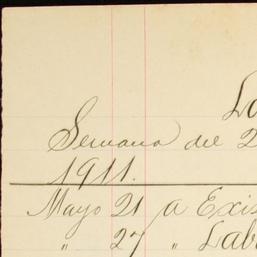 La
Semana del 2
1911.
Mayo 21 a Exis
" 27 " Lab